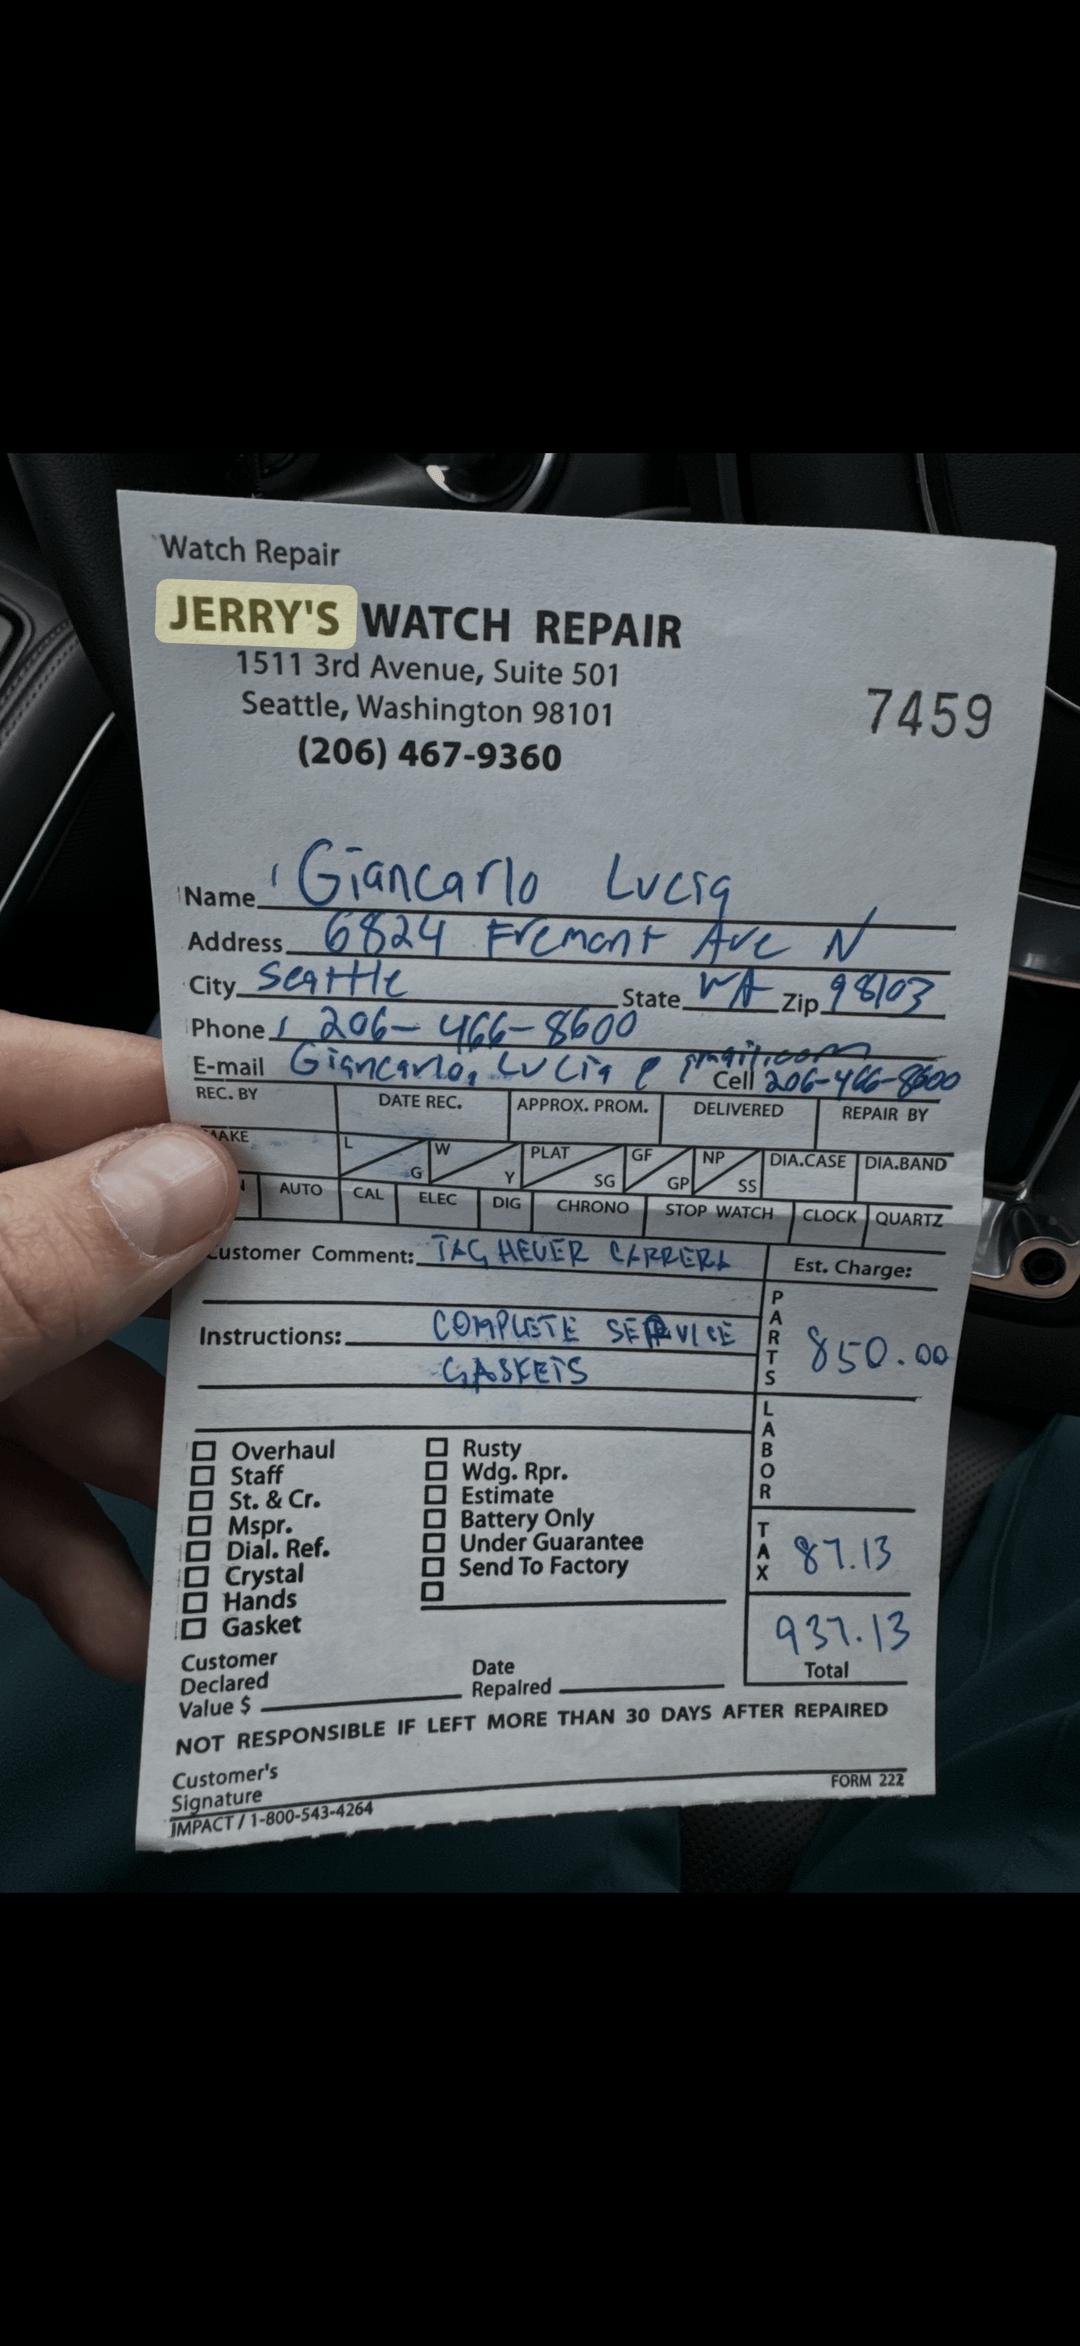 Watch Repair
JERRY'S WATCH REPAIR
1511 3rd Avenue, Suite 501
Seattle, Washington 98101
(206) 467-9360
7459
Name Giancarlo Lucia
Address 6824 Fremont Ave N
City Seattle State WA Zip 98103
Phone 206-466-8600
E-mail Giancarlo.Lucia@gmail.com
Cell 206-466-8600
REC. BY DATE REC. APPROX. PROM. DELIVERED REPAIR BY
MAKE L G W Y PLAT SG GF GP NP SS DIA.CASE DIA.BAND
AUTO CAL ELEC DIG CHRONO STOP WATCH CLOCK QUARTZ
Customer Comment: TAG HEUER CARRERA Est. Charge:
Instructions: COMPLETE SERVICE PARTS 850.00
GASKETS
LABOR
Overhaul Rusty
Staff Wdg. Rpr.
St. & Cr. Estimate
Mspr. Battery Only
Dial. Ref. Under Guarantee
Crystal Send To Factory
Hands
Gasket
TAX 87.13
937.13
Total
Customer Declared Value $ Date Repaired
NOT RESPONSIBLE IF LEFT MORE THAN 30 DAYS AFTER REPAIRED
Customer's Signature
FORM 222
IMPACT / 1-800-543-4264